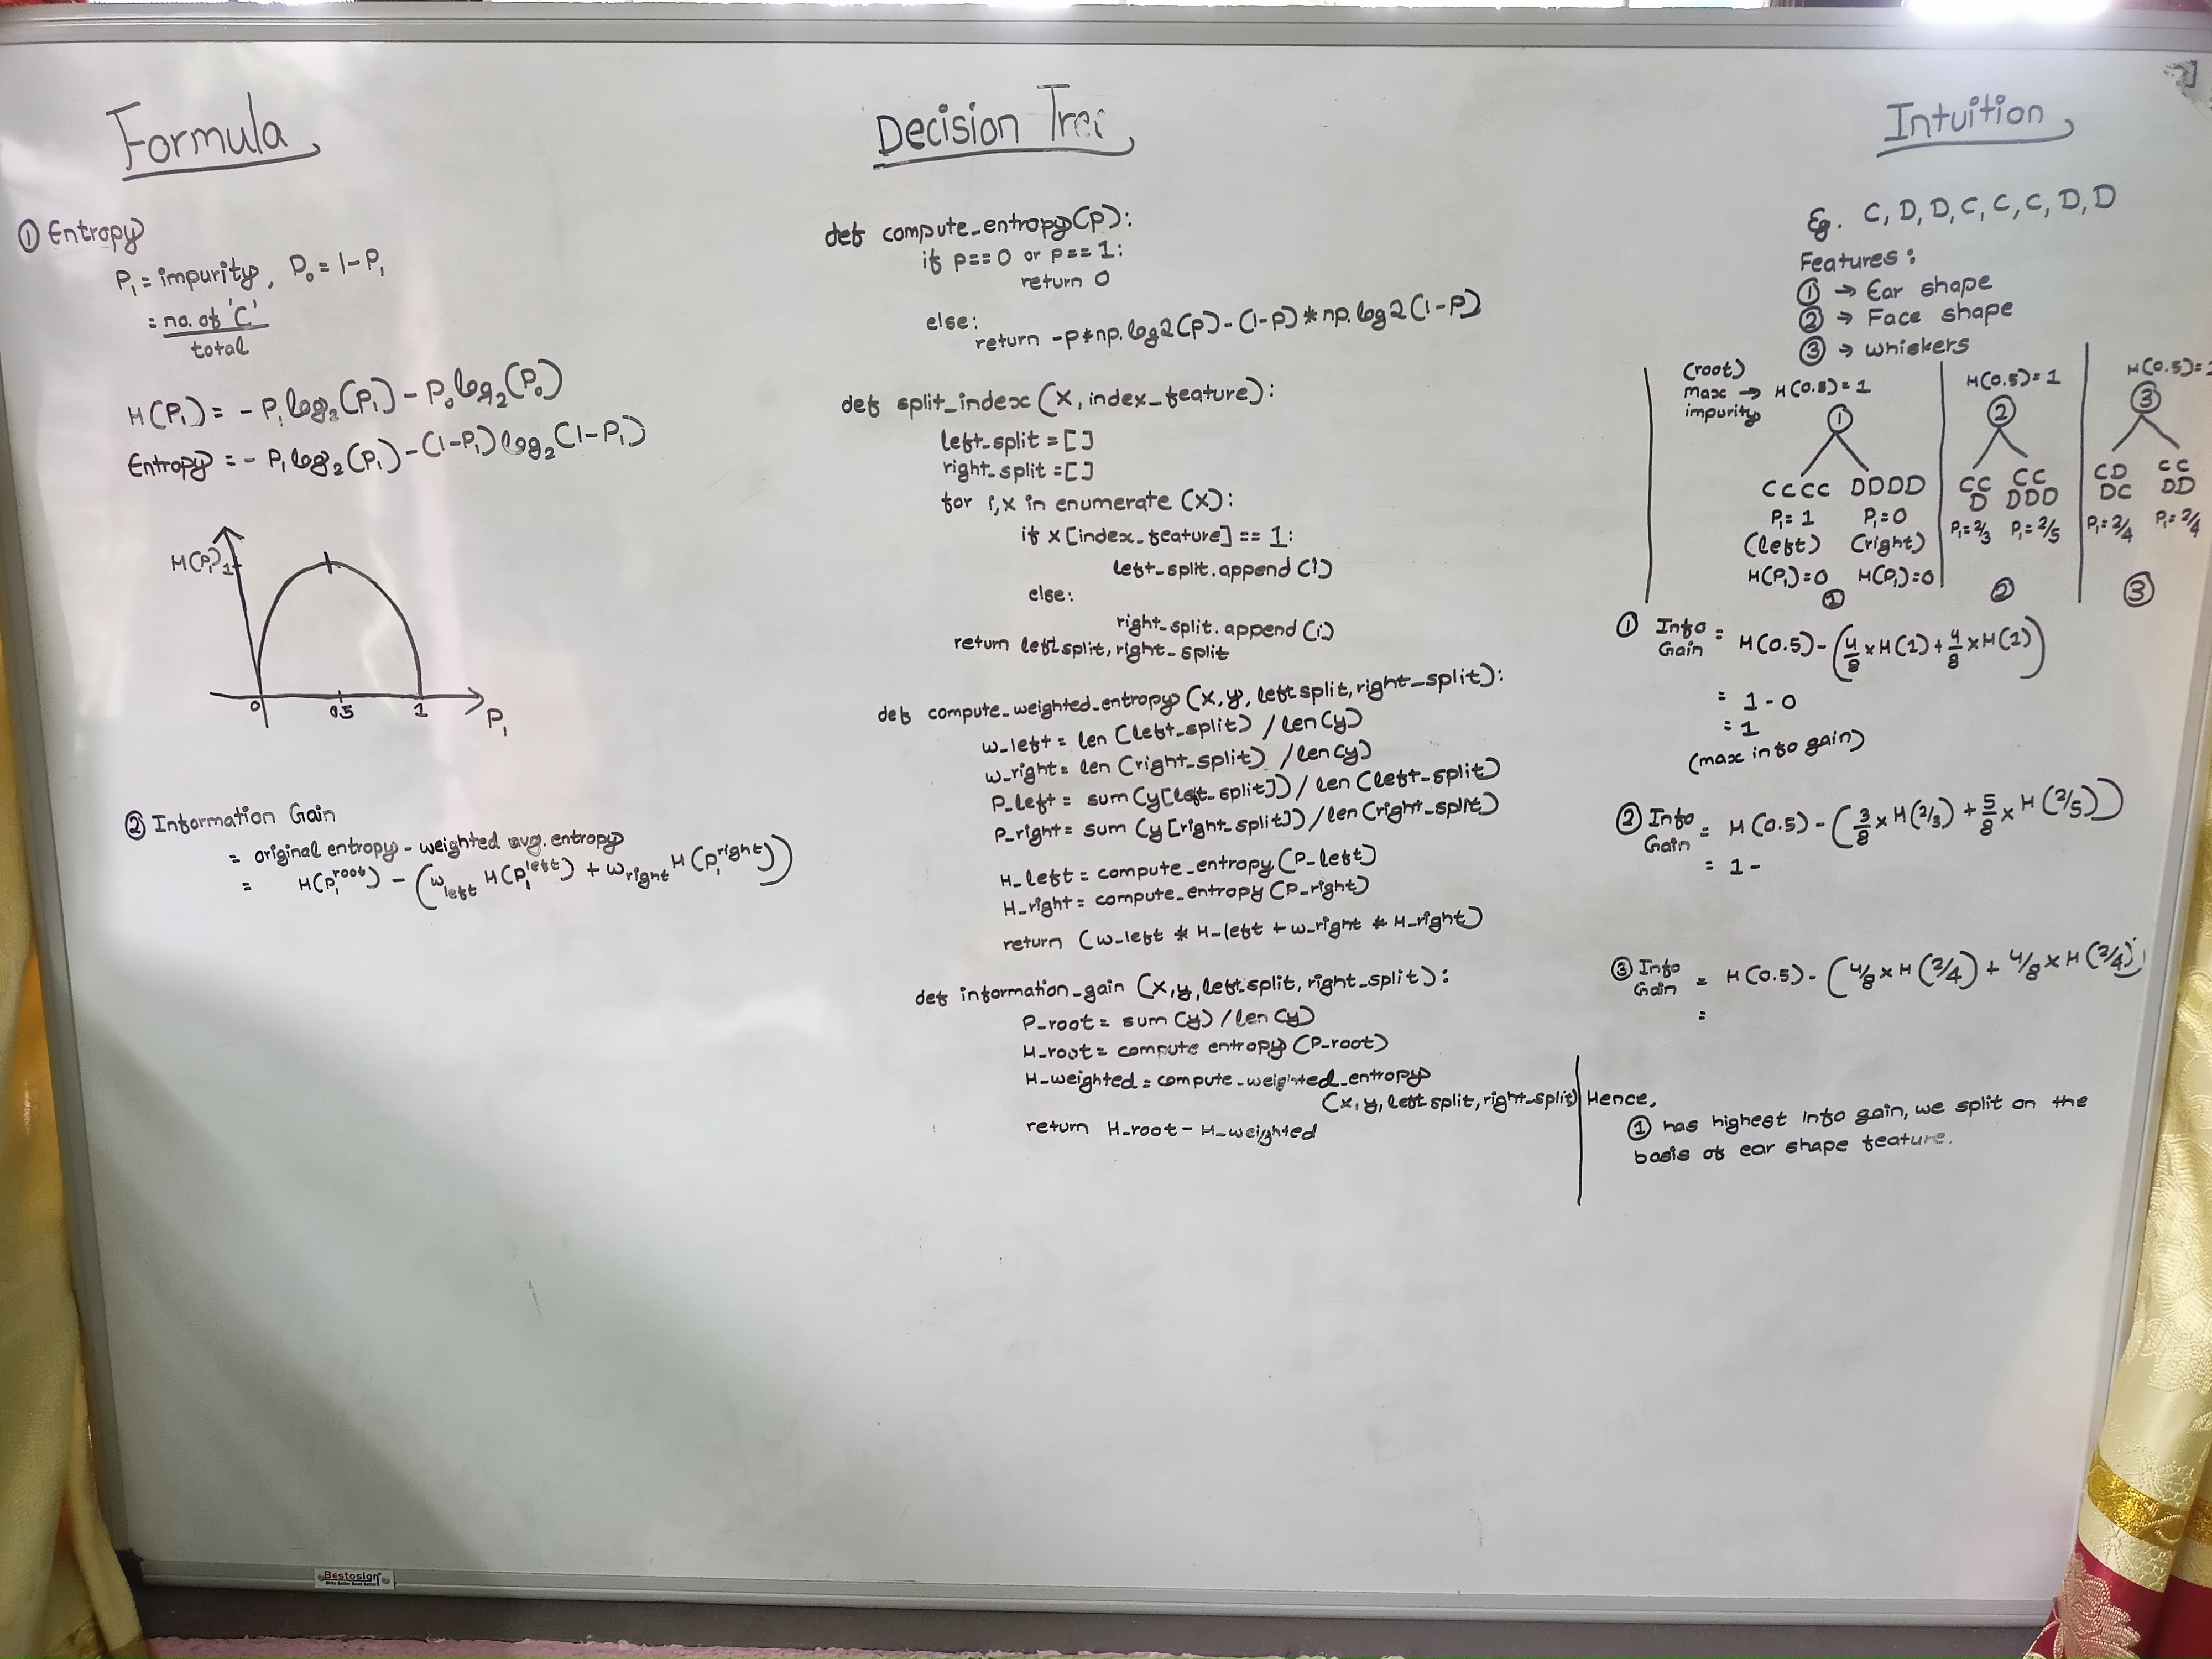 Formula
① Entropy
P₁ = impurity, P₀ = 1-P₁
= no. of 'C'
total
H(P₁) = - P₁ log₂(P₁) - P₀ log₂(P₀)
Entropy = - P₁ log₂(P₁) - (1-P₁) log₂(1-P₁)
H(P₁) 1
0 0.5 1 P₁
② Information Gain
= original entropy - weighted avg. entropy
= H(P₁^root) - (w_left H(P₁^left) + w_right H(P₁^right))
Decision Tree
def compute_entropy(p):
if p==0 or p==1:
return 0
else:
return -p*np.log2(p)-(1-p)*np.log2(1-p)
def split_index(X, index_feature):
left_split = []
right_split = []
for i,x in enumerate (X):
if x[index_feature] == 1:
left_split.append(i)
else:
right_split.append(i)
return left_split, right_split
def compute_weighted_entropy(X, y, left split, right_split):
w_left = len (left_split) / len(y)
w_right = len (right_split) / len(y)
P_left = sum (y[left_split]) / len (left_split)
P_right = sum (y[right_split]) / len(right_split)
H_left = compute_entropy (P_left)
H_right = compute_entropy (P_right)
return (w_left * H_left + w_right * H_right)
def information_gain (X, y, left split, right_split):
P_root = sum (y) / len (y)
H_root = compute entropy (P_root)
H_weighted = compute_weighted_entropy
(X, y, left split, right_split)
return H_root - H_weighted
Intuition
Eg. C, D, D, C, C, C, D, D
Features:
① → Ear shape
② → Face shape
③ → whiskers
(root)
max → H(0.5)=1
impurity
①
CCCC DDDD
P₁=1 P₁=0
(left) (right)
H(P₁)=0 H(P₁)=0
①
H(0.5)=1
②
CC CC
D DDD
P₁=2/3 P₁=2/5
②
H(0.5)=1
③
CD CC
DC DD
P₁=2/4 P₁=2/4
③
① Info Gain = H(0.5) - (4/8 × H(1) + 4/8 × H(1))
= 1 - 0
= 1
(max info gain)
② Info Gain = H(0.5) - (3/8 × H(2/3) + 5/8 × H(2/5))
= 1 -
③ Info Gain = H(0.5) - (4/8 × H(2/4) + 4/8 × H(2/4))
=
Hence,
① has highest info gain, we split on the
basis of ear shape feature.
Bestosign
Write Better Read Better